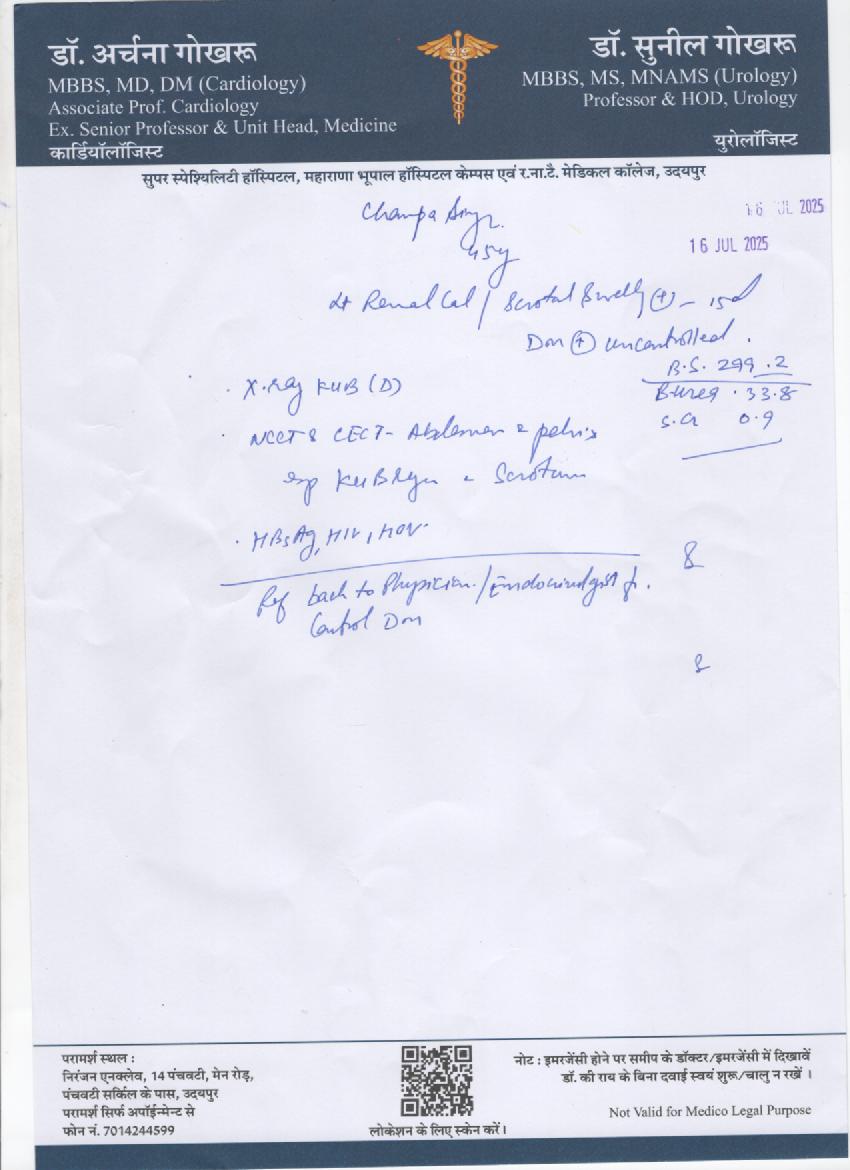 डॉ. अर्चना गोखरू
MBBS, MD, DM (Cardiology)
Associate Prof. Cardiology
Ex. Senior Professor & Unit Head, Medicine
कार्डियॉलॉजिस्ट
डॉ. सुनील गोखरू
MBBS, MS, MNAMS (Urology)
Professor & HOD, Urology
युरोलॉजिस्ट
सुपर स्पेश्यिलिटी हॉस्पिटल, महाराणा भूपाल हॉस्पिटल केम्पस एवं र.ना.टै. मेडिकल कॉलेज, उदयपुर
16 JUL 2025
16 JUL 2025
Champa
45y
Renal Cal / Scrotal Swelly (+) - 15d
Dm (+) uncontrolled.
B.S. 299.2
B.urea . 33.8
S.Cr 0.9
X-ray KUB (D)
NCCT & CECT- Abdomen & pelvis
KUB Scrotum
HBsAg, HIV, HCV
Ref back to Physician / Endocrinolgist fr.
Control Dm
परामर्श स्थल :
निरंजन एनक्लेव, 14 पंचवटी, मेन रोड़,
पंचवटी सर्किल के पास, उदयपुर
परामर्श सिर्फ अपॉईन्मेन्ट से
फोन नं. 7014244599
लोकेशन के लिए स्केन करें।
नोट : इमरजेंसी होने पर समीप के डॉक्टर/इमरजेंसी में दिखावें
डॉ. की राय के बिना दवाई स्वयं शुरू/चालु न रखें ।
Not Valid for Medico Legal Purpose